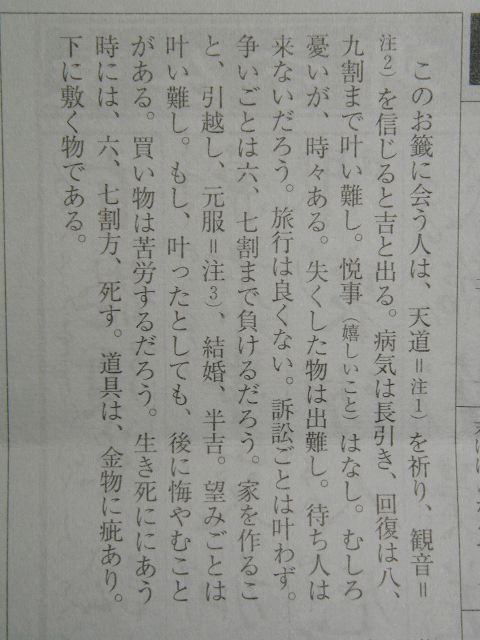 このお籤に会う人は、天道＝注1）を祈り、観音＝
注2）を信じると吉と出る。病気は長引き、回復は八、
九割まで叶い難し。悦事（嬉しいこと）はなし。むしろ
憂いが、時々ある。失くした物は出難し。待ち人は
来ないだろう。旅行は良くない。訴訟ごとは叶わず。
争いごとは六、七割まで負けるだろう。家を作るこ
と、引越し、元服＝注3）、結婚、半吉。望みごとは
叶い難し。もし、叶ったとしても、後に悔やむこと
がある。買い物は苦労するだろう。生き死ににあう
時には、六、七割方、死す。道具は、金物に疵あり。
下に敷く物である。